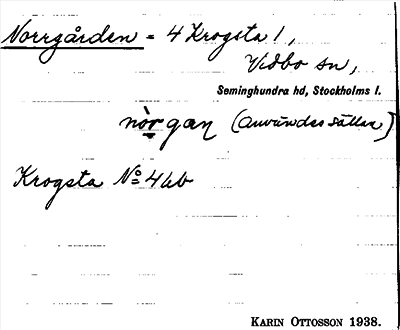 Norrgården = 4 Krogsta 1,
Vidbo sn,
Seminghundra hd, Stockholms l.
nòrgaṇ (användes sällan)
Krogsta No 4ab
KARIN OTTOSSON 1938.